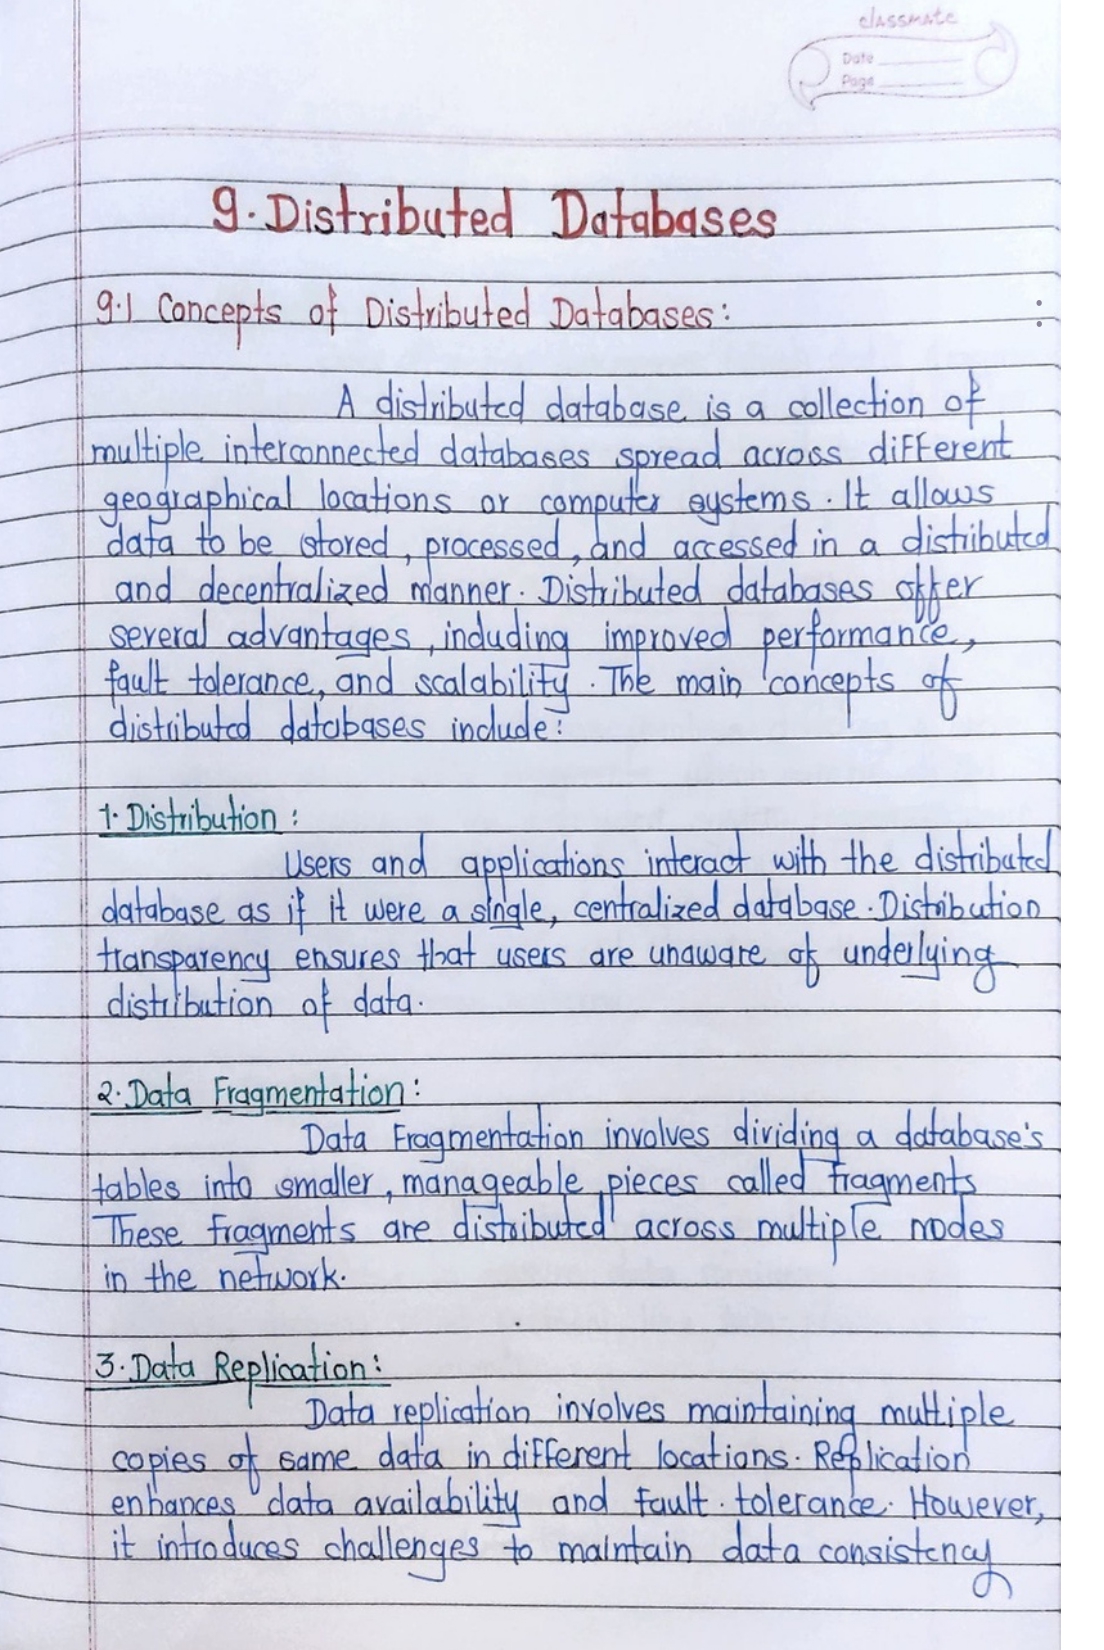 classmate
Date
Page
9. Distributed Databases
9.1 Concepts of Distributed Databases:
A distributed database is a collection of
multiple interconnected databases spread across different
geographical locations or computer systems. It allows
data to be stored, processed, and accessed in a distributed
and decentralized manner. Distributed databases offer
several advantages, including improved performance,
fault tolerance, and scalability. The main concepts of
distributed databases include:
1. Distribution:
Users and applications interact with the distributed
database as if it were a single, centralized database. Distribution
transparency ensures that users are unaware of underlying
distribution of data.
2. Data Fragmentation:
Data Fragmentation involves dividing a database's
tables into smaller, manageable pieces called fragments
These fragments are distributed across multiple nodes
in the network.
3. Data Replication:
Data replication involves maintaining multiple
copies of same data in different locations. Replication
enhances data availability and fault. tolerance. However,
it introduces challenges to maintain data consistency